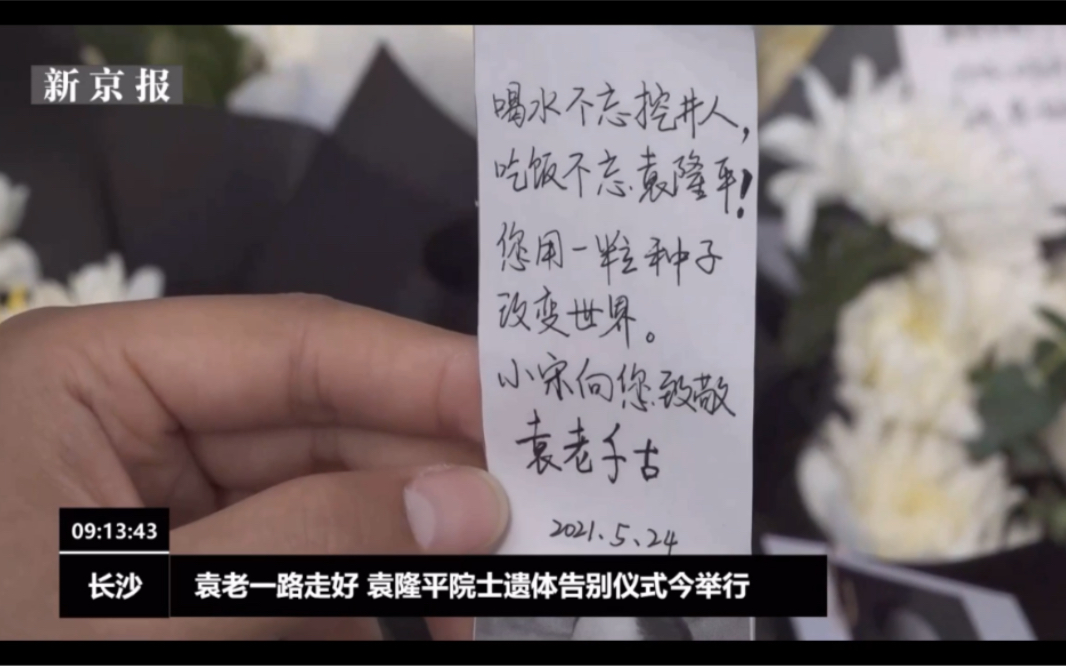 新京报
喝水不忘挖井人,
吃饭不忘袁隆平!
您用一粒种子
改变世界。
小宋向您致敬
袁老千古
2021.5.24
09:13:43
长沙
袁老一路走好 袁隆平院士遗体告别仪式今举行